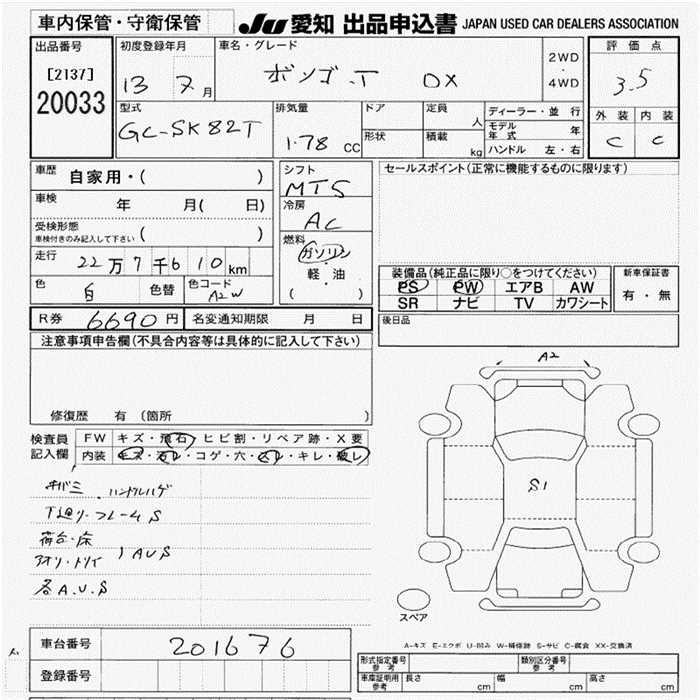 車内保管・守衛保管
JU 愛知 出品申込書 JAPAN USED CAR DEALERS ASSOCIATION
出品番号
[2137]
20033
初度登録年月
13 7月
車名・グレード
ボンゴ.T DX
2WD
・
4WD
評価点
3.5
外装 内装
C C
型式
GC-SK82T
排気量
1.78 CC
ドア
形状
定員 人
積載 kg
ディーラー・並 行
モデル年式 年
ハンドル 左・右
車歴
自家用・( )
車検 年 月( 日)
受検形態
車検付きのみ記入して下さい ( )
走行
22万7千610km
色 白 色替
色コード
A2W
シフト
MT5
冷房
AC
燃料
ガソリン
・
軽・油
( )
セールスポイント(正常に機能するものに限ります)
装備品(純正品に限り○をつけてください)
PS PW エアB AW
SR ナビ TV カワシート
新車保証書
有・無
後日品
R券 6690円 名変通知期限 月 日
注意事項申告欄(不具合内容等は具体的に記入して下さい)
修復歴 有 (箇所 )
検査員
記入欄
FW キズ・飛石・ヒビ割・リペア跡・X要
内装 キズ・汚レ・コゲ・穴・スレ・キレ・破レ
キバミ ハンドルハゲ
下廻リ・フレームS
荷台・床
アオリ・トリイ AUS
各A.U.S
A2
S1
スペア
A-キズ E-エクボ U-凹み W-補修跡 S-サビ C-腐食 XX-交換済
車台番号
201676
登録番号
形式指定番号
参考
類別区分番号
参考
車庫証明用
参考
長さ cm
幅 cm
高さ cm